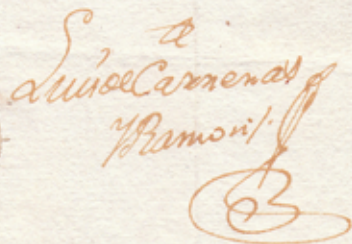 Luis de Carrenas
Y Ramoni